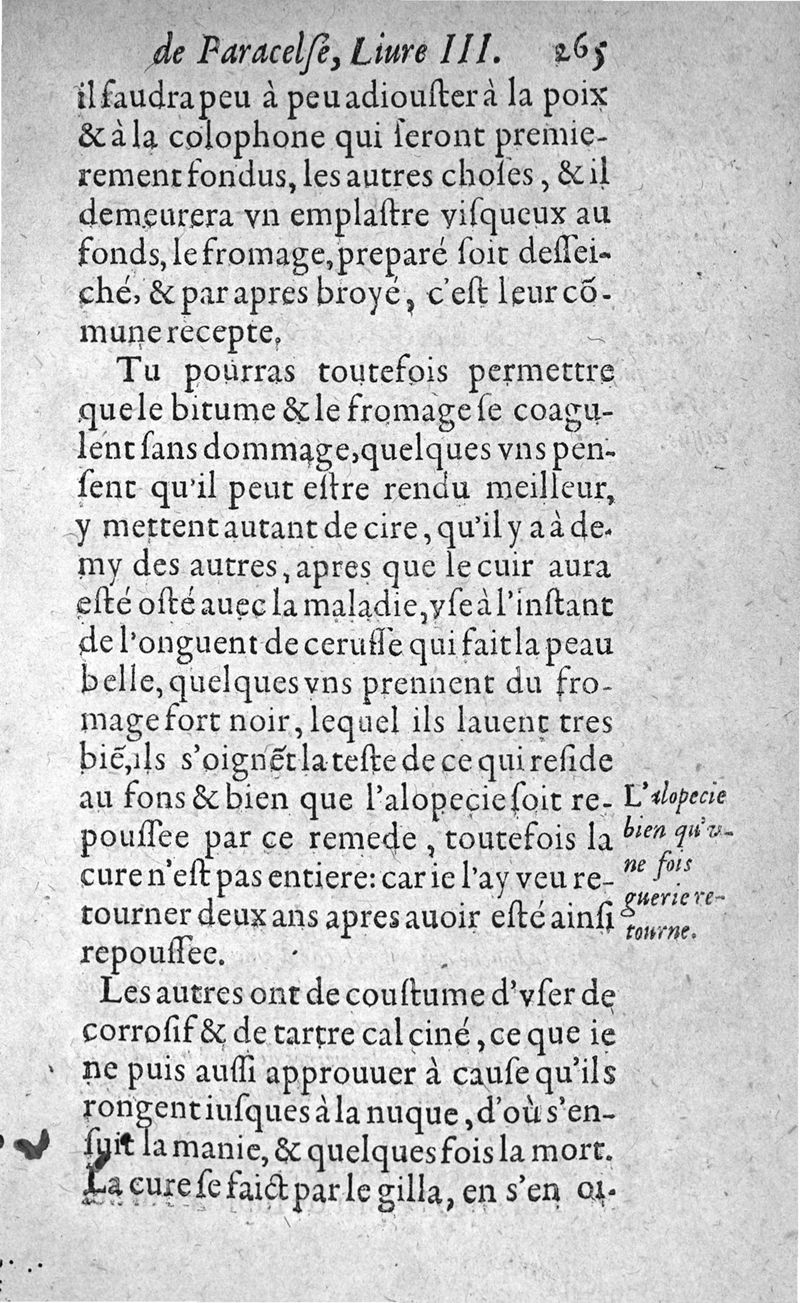 de Paracelſe, Liure III. 265
il faudra peu à peu adiouſter à la poix
& à la colophone qui ſeront premie-
rement fondus, les autres choſes, & il
demeurera vn emplaſtre viſqueux au
fonds, le fromage, preparé ſoit deſſei-
ché, & par apres broyé, c'eſt leur cõ-
mune recepte.
Tu pourras toutefois permettre
que le bitume & le fromage ſe coagu-
lent ſans dommage, quelques vns pen-
ſent qu'il peut eſtre rendu meilleur,
y mettent autant de cire, qu'il y a à de-
my des autres, apres que le cuir aura
eſté oſté auec la maladie, vſe à l'inſtant
de l'onguent de ceruſſe qui fait la peau
belle, quelques vns prennent du fro-
mage fort noir, lequel ils lauent tres
biẽ, ils s'oignẽt la teſte de ce qui reſide
au fons & bien que l'alopecie ſoit re-
pouſſee par ce remede, toutefois la
cure n'eſt pas entiere: car ie l'ay veu re-
tourner deux ans apres auoir eſté ainſi
repouſſee.
L'alopecie
bien qu'v-
ne fois
guerie re-
tourne.
Les autres ont de couſtume d'vſer de
corroſif & de tartre calciné, ce que ie
ne puis auſſi approuuer à cauſe qu'ils
rongent iuſques à la nuque, d'où s'en-
ſuit la manie, & quelques fois la mort.
La cure ſe faict par le gilla, en s'en oi-